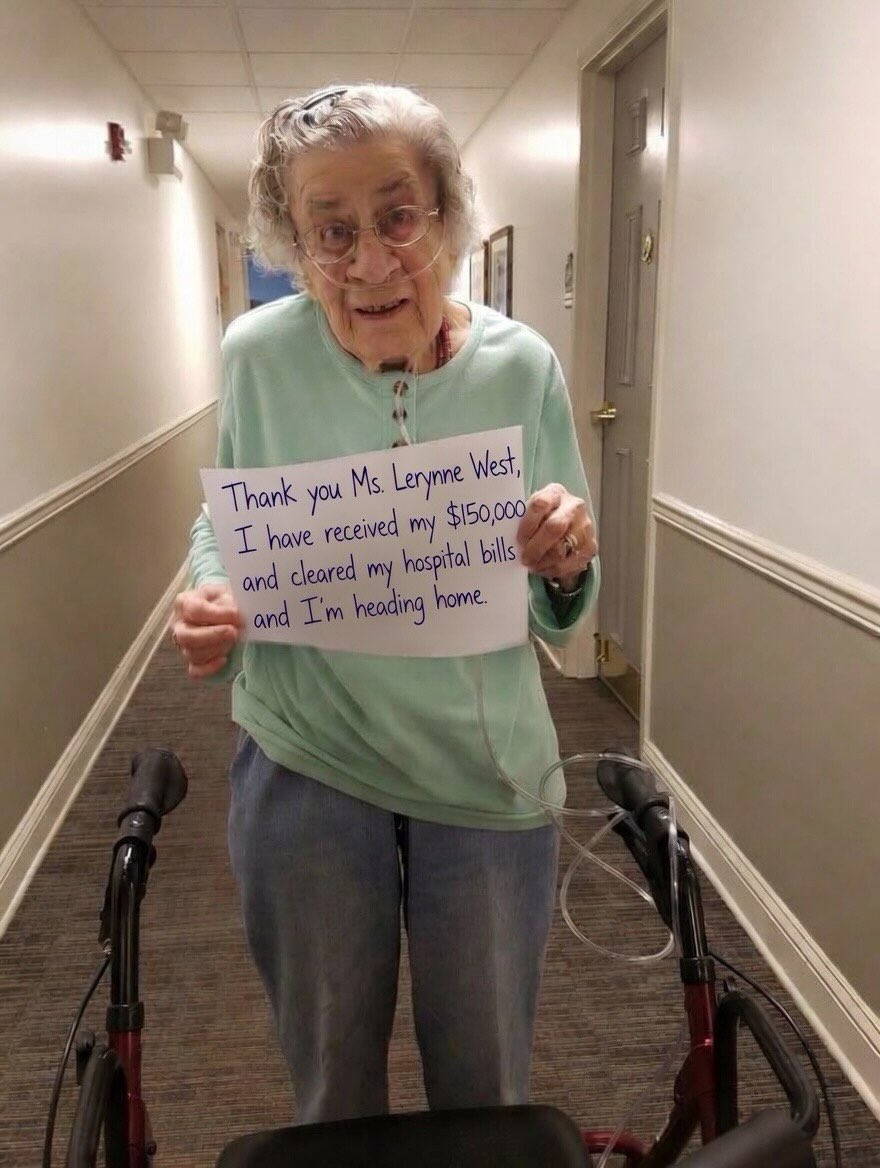 Thank you Ms. Lerynne West,
I have received my $150,000
and cleared my hospital bills
and I'm heading home.